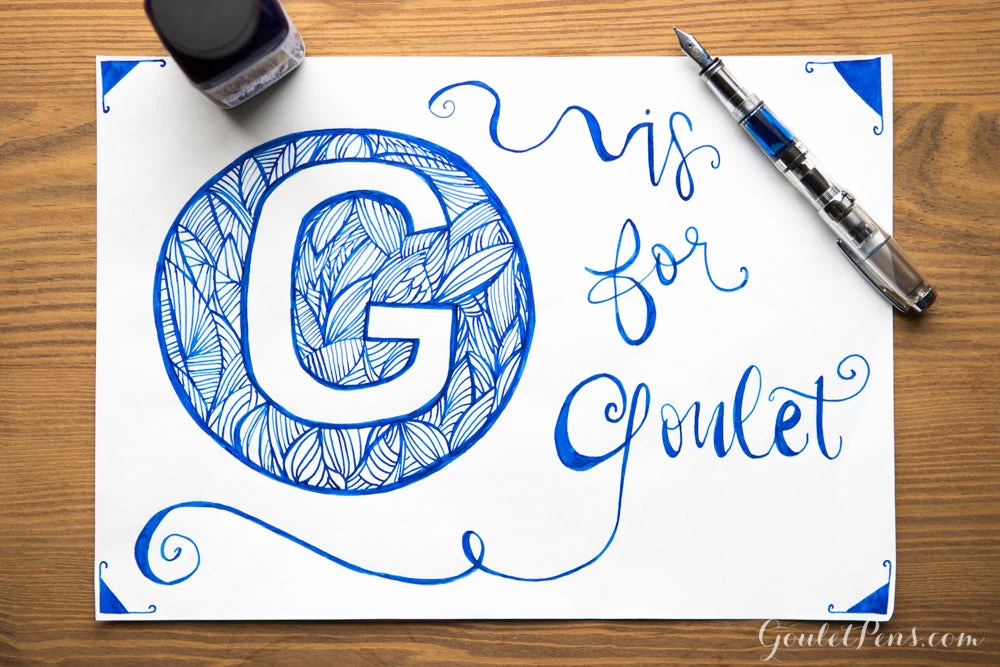 G
is
for
Goulet
GouletPens.com